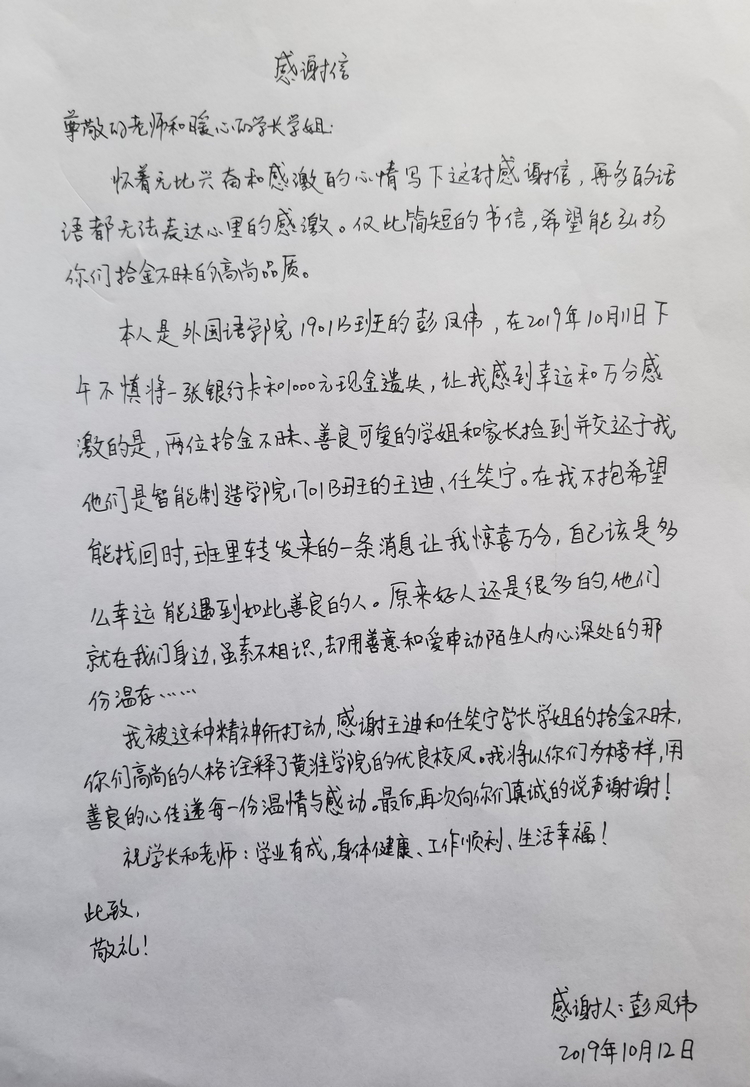 感谢信
尊敬的老师和暖心的学长学姐:
怀着无比兴奋和感激的心情写下这封感谢信,再多的话
语都无法表达心里的感激。仅此简短的书信,希望能弘扬
你们拾金不昧的高尚品质。
本人是外国语学院1901B班的彭凤伟,在2019年10月11日下
午不慎将一张银行卡和1000元现金遗失,让我感到幸运和万分感
激的是,两位拾金不昧、善良可爱的学姐和家长捡到并交还于我,
他们是智能制造学院1701B班的王迪、任笑宁。在我不抱希望
能找回时,班里转发来的一条消息让我惊喜万分,自己该是多
么幸运能遇到如此善良的人。原来好人还是很多的,他们
就在我们身边,虽素不相识,却用善意和爱牵动陌生人内心深处的那
份温存……
我被这种精神所打动,感谢王迪和任笑宁学长学姐的拾金不昧,
你们高尚的人格诠释了黄淮学院的优良校风。我将以你们为榜样,用
善良的心传递每一份温情与感动。最后,再次向你们真诚的说声谢谢!
祝学长和老师:学业有成,身体健康、工作顺利、生活幸福!
此致,
敬礼!
感谢人:彭凤伟
2019年10月12日